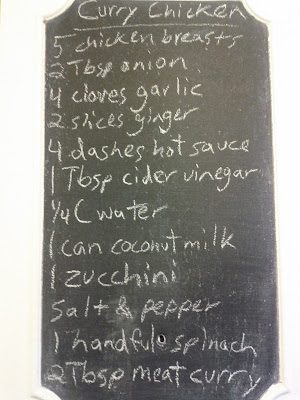 Curry Chicken
5 chicken breasts
2 Tbsp onion
4 cloves garlic
2 slices ginger
4 dashes hot sauce
1 Tbsp cider vinegar
1/4 C water
1 can coconut milk
1 zucchini
Salt & pepper
1 handful spinach
2 Tbsp meat curry